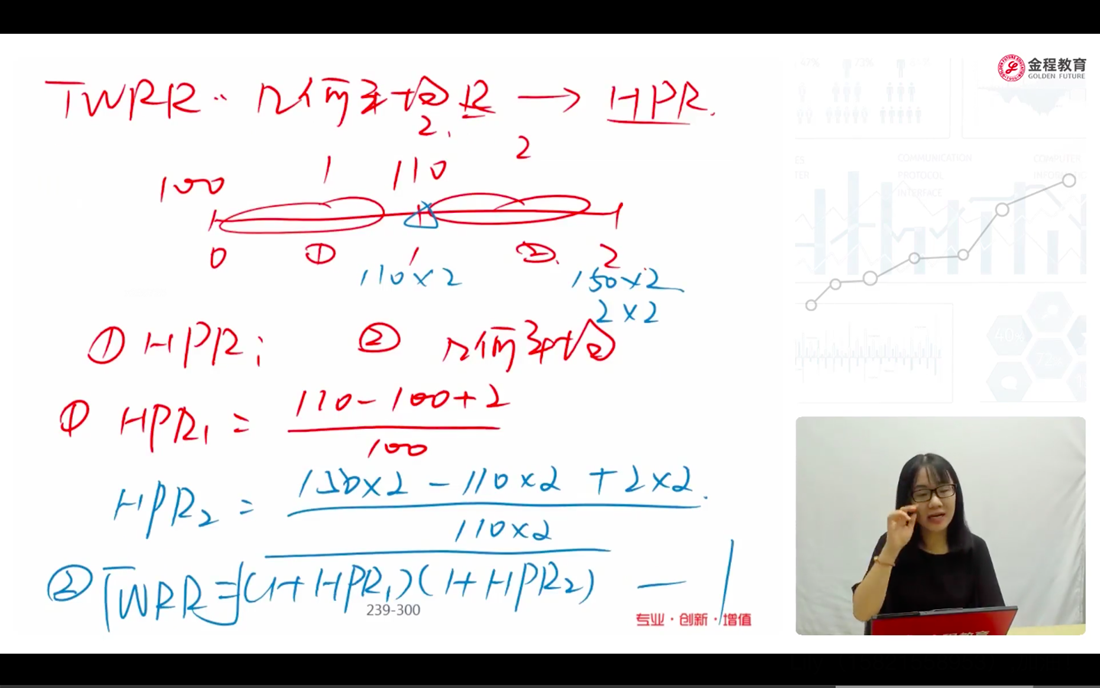 金程教育
GOLDEN FUTURE
TWRR: 几何平均R → HPR.
2. 2
100 1 110
0 ① 1 ② 2
110×2 150×2
2×2
① HPRi ② 几何平均
① HPR1 = (110-100+2)/100
HPR2 = (150×2 - 110×2 + 2×2)/(110×2)
② TWRR = √(1+HPR1)(1+HPR2) - 1
239-300
专业·创新·增值